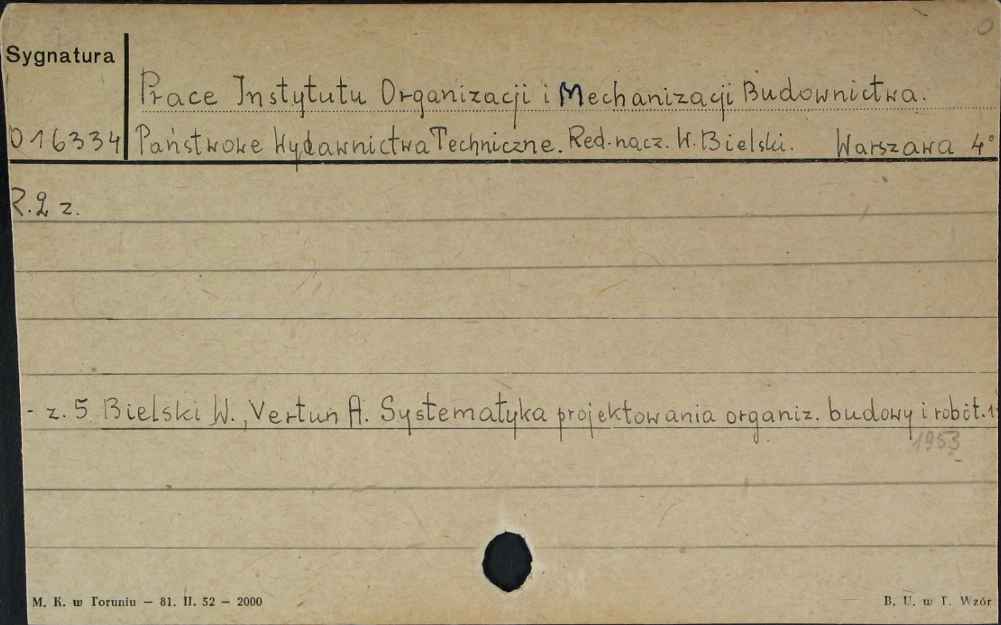 Sygnatura
Prace Instytutu Organizacji i Mechanizacji Budownictwa.
016334 Państwowe Wydawnictwa Techniczne. Red. nacz. W. Bielski. Warszawa 4°
R. 2 z.
- z. 5 Bielski W., Vertun A. Systematyka projektowania organiz. budowy i robót.
1953
M. K. w Toruniu — 81. II. 52 — 2000 B. U. w T. Wzór